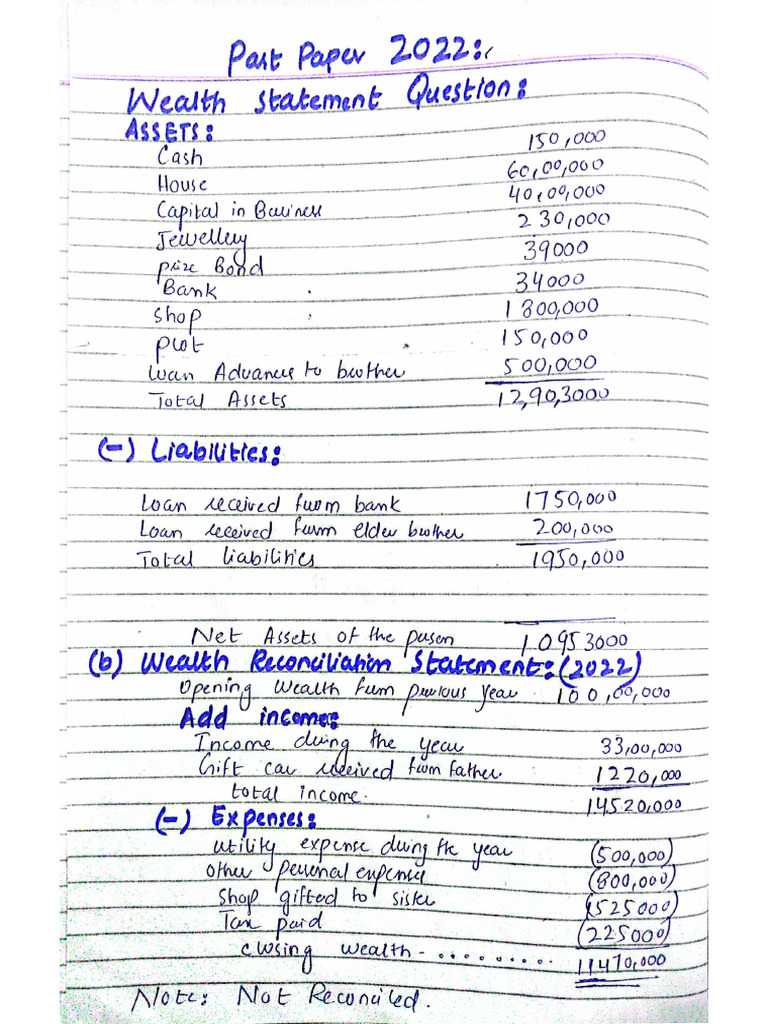 Past Paper 2022:
Wealth statement Question:
ASSETS:
Cash 150,000
House 60,00,000
Capital in Business 40,00,000
Jewellery 230,000
prize Bond 39000
Bank 34000
Shop 1800,000
plot 150,000
loan Advances to brother 500,000
Total Assets 12,90,3000
(-) Liabilities:
Loan received from bank 1750,000
Loan received from elder brother 200,000
Total liabilities 1950,000
Net Assets of the person 10953000
(b) Wealth Reconciliation Statement:(2022)
Opening Wealth from previous year 100,00,000
Add income:
Income during the year 33,00,000
Gift car received from father 1220,000
total income. 14520,000
(-) Expenses:
utility expense during the year (500,000)
other personal expense (800,000)
Shop gifted to sister (1525000)
Tax paid (225000)
closing wealth-......... 11470,000
Note: Not Reconciled.